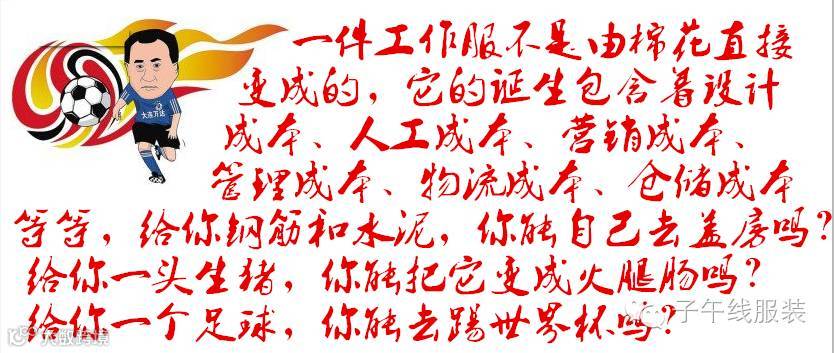 一件工作服不是由棉花直接
变成的，它的诞生包含着设计
成本、人工成本、营销成本、
管理成本、物流成本、仓储成本
等等，给你钢筋和水泥，你能自己去盖房吗？
给你一头生猪，你能把它变成火腿肠吗？
给你一个足球，你能去踢世界杯吗？
大连万达
子午线服装
大数跨境